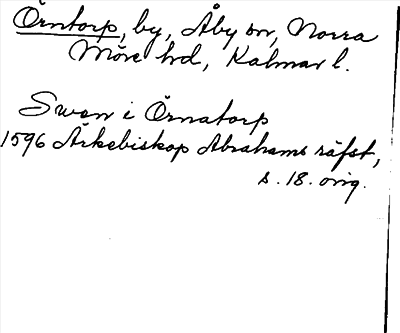 Örntorp, by, Åby sn, Norra
Möre hd, Kalmar l.
Swen i Örnatorp
1596 Ärkebiskop Abrahams räfst,
s. 18. orig.